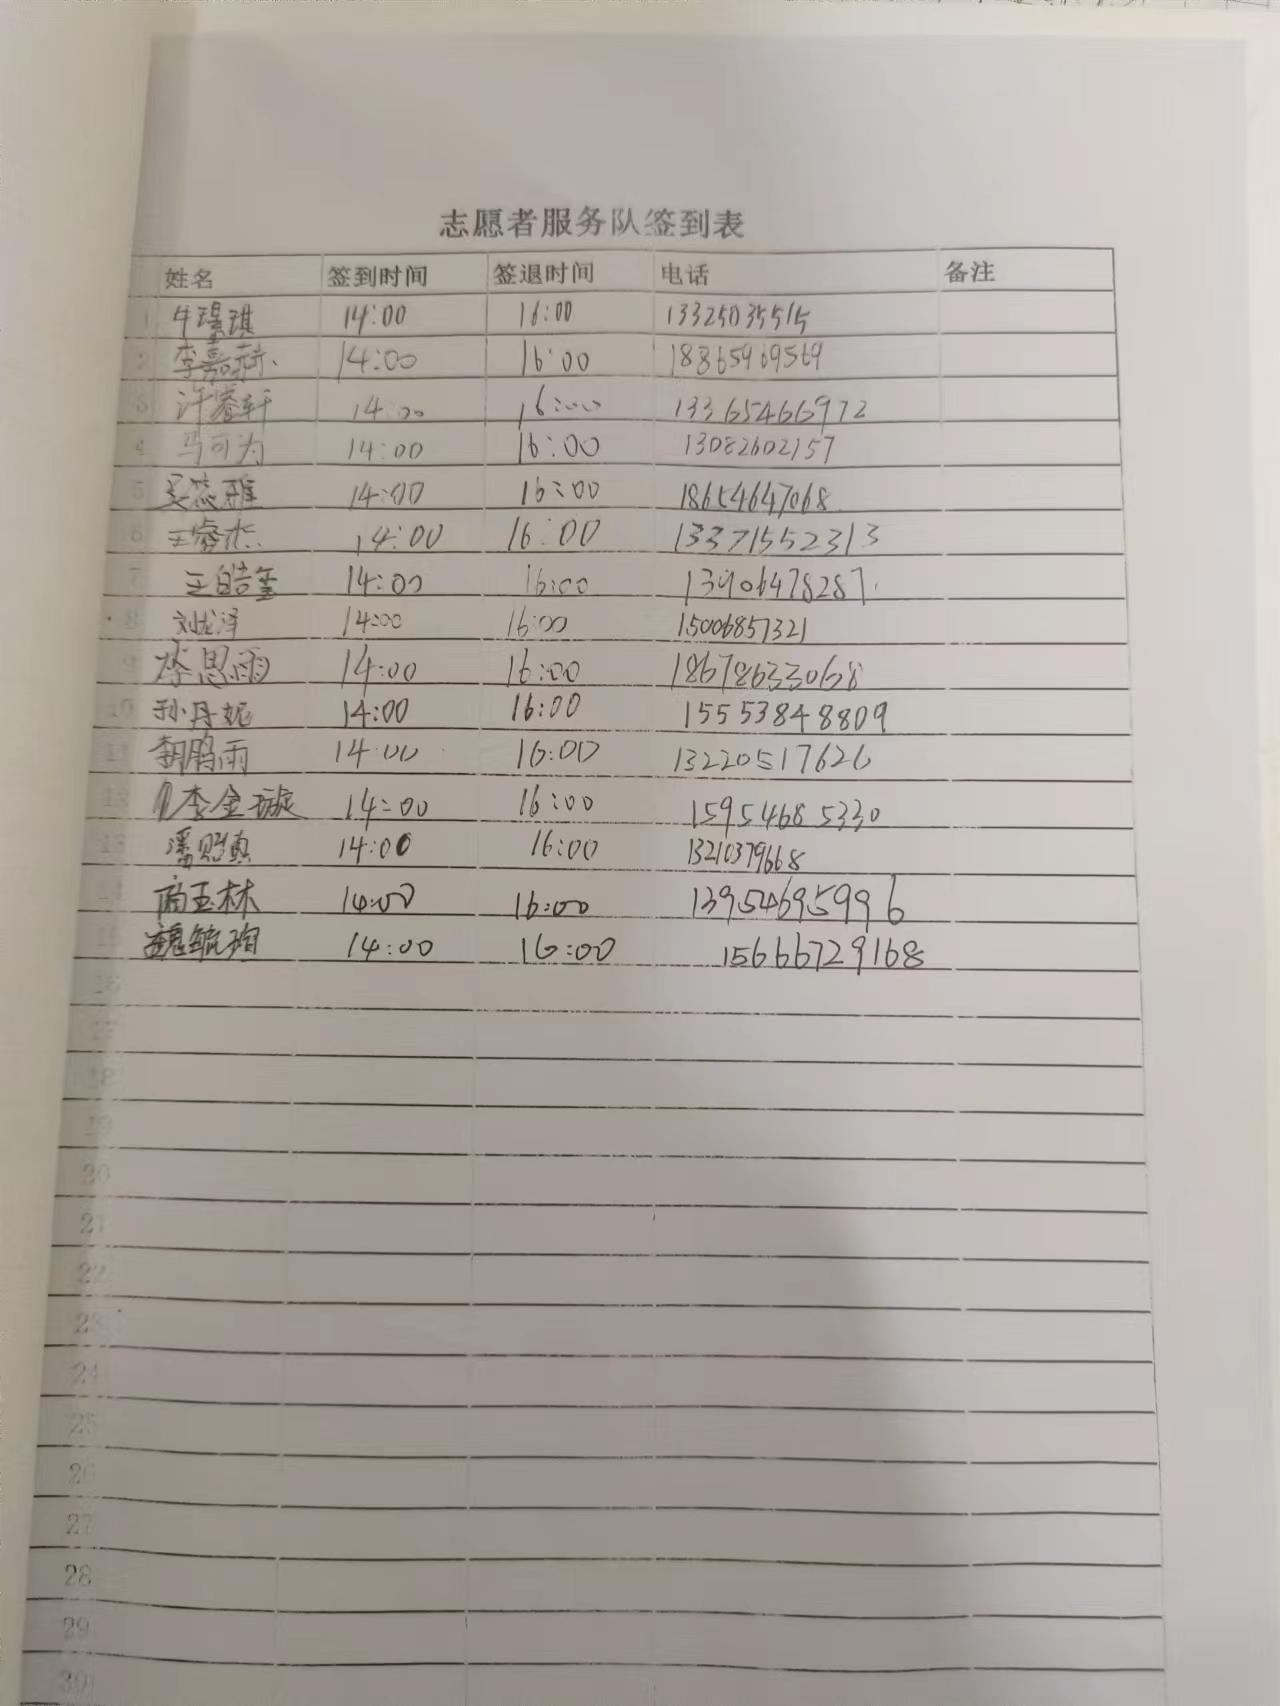 志愿者服务队签到表
姓名 签到时间 签退时间 电话 备注
1 牛璟琪 14:00 16:00 13325035515
2 李嘉赫 14:00 16:00 18865969569
3 许睿轩 14:00 16:00 13365466972
4 马可为 14:00 16:00 13082602157
5 吴蕊雅 14:00 16:00 18654647068
6 王睿杰 14:00 16:00 13371552313
7 王皓玺 14:00 16:00 13906478287
8 刘龙泽 14:00 16:00 15006857321
9 李思雨 14:00 16:00 18678633068
10 孙丹妮 14:00 16:00 15553848809
11 胡鹏雨 14:00 16:00 13220517626
12 李金璇 14:00 16:00 15954685330
13 潘熙真 14:00 16:00 13210379668
14 商玉林 14:00 16:00 13954695996
15 魏毓珣 14:00 16:00 15666729168
16
17
18
19
20
21
22
23
24
25
26
27
28
29
30